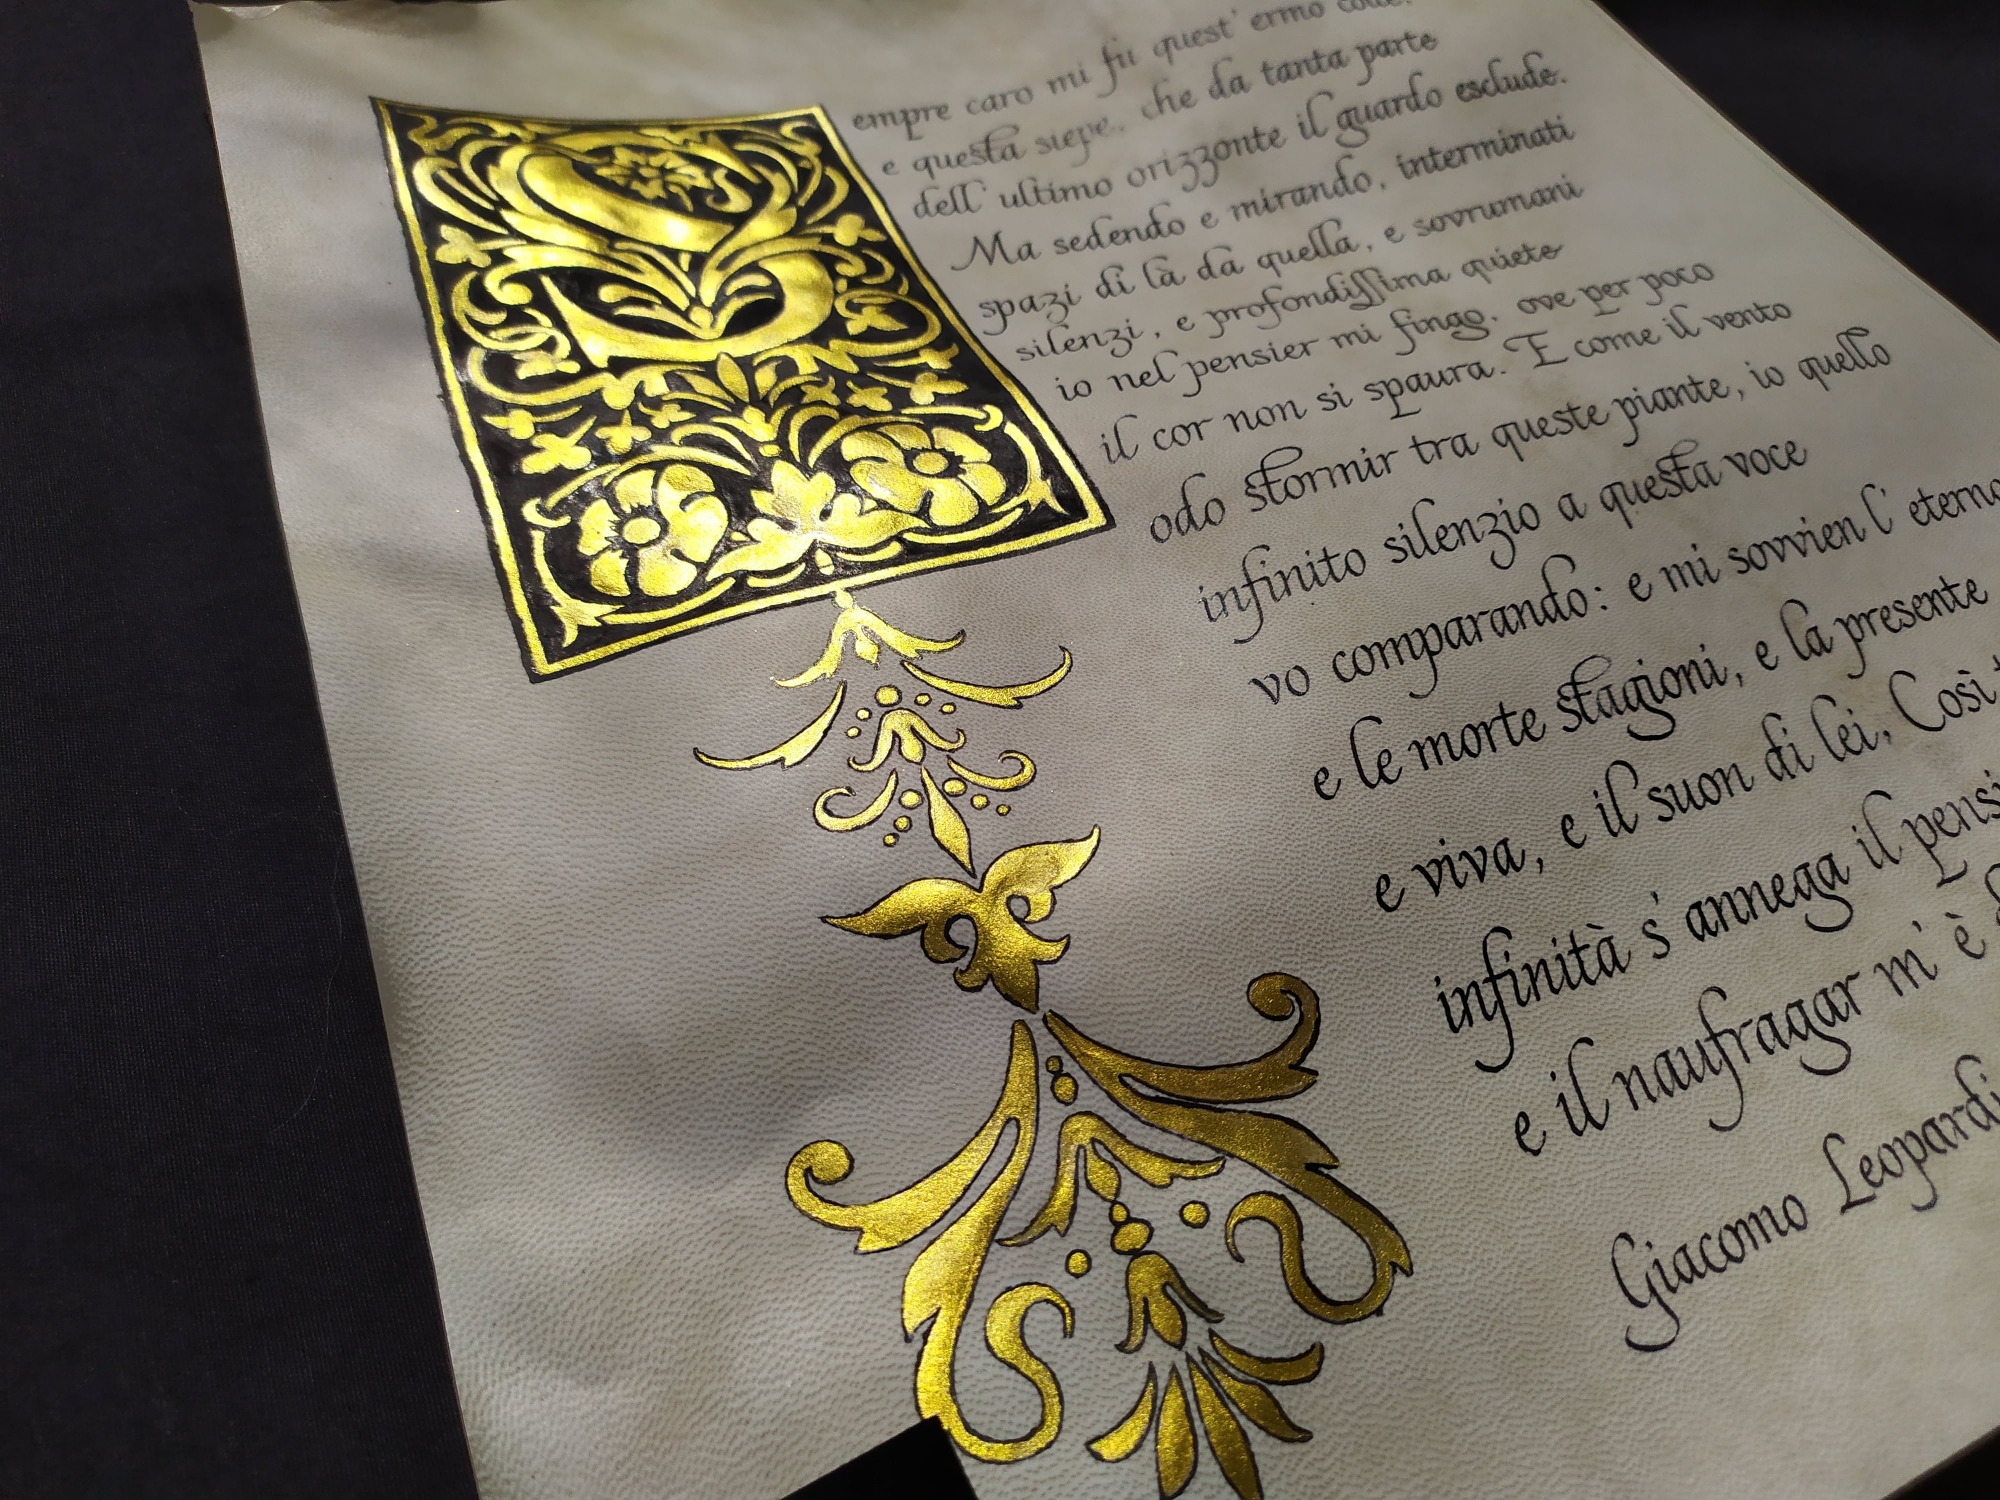 Sempre caro mi fu quest' ermo colle,
e questa siepe, che da tanta parte
dell' ultimo orizzonte il guardo esclude.
Ma sedendo e mirando, interminati
spazi di là da quella, e sovrumani
silenzi, e profondissima quiete
io nel pensier mi fingo, ove per poco
il cor non si spaura. E come il vento
odo stormir tra queste piante, io quello
infinito silenzio a questa voce
vo comparando: e mi sovvien l' eterno
e le morte stagioni, e la presente
e viva, e il suon di lei. Così
infinità s' annega il
e il naufragar m' è
Giacomo Leopardi